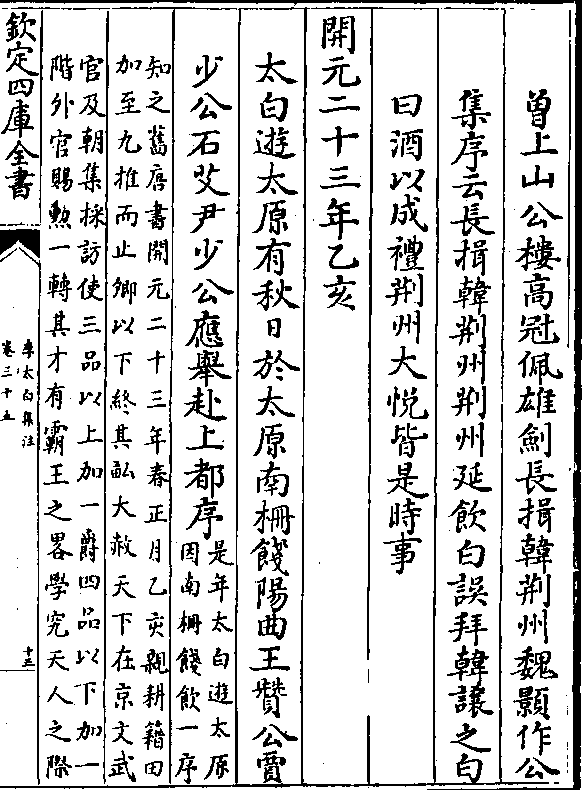 曾上山公樓高冠佩雄劍長揖韓荆州魏顥作公
集序云長揖韓荆州荆州延飲白誤拜韓讓之白
曰酒以成禮荆州大悅皆是時事
開元二十三年乙亥
太白遊太原有秋日於太原南柵餞陽曲王贊公賈
少公石艾尹少公應舉赴上都序是年太白遊太原
因南柵餞飲一序
知之舊唐書開元二十三年春正月乙亥親耕籍田
加至九推而止卿以下終其畝大赦天下在京文武
官及朝集採訪使三品以上加一爵四品以下加一
階外官賜勲一轉其才有霸王之畧學究天人之際
欽定四庫全書
李太白集注
卷三十五
十三